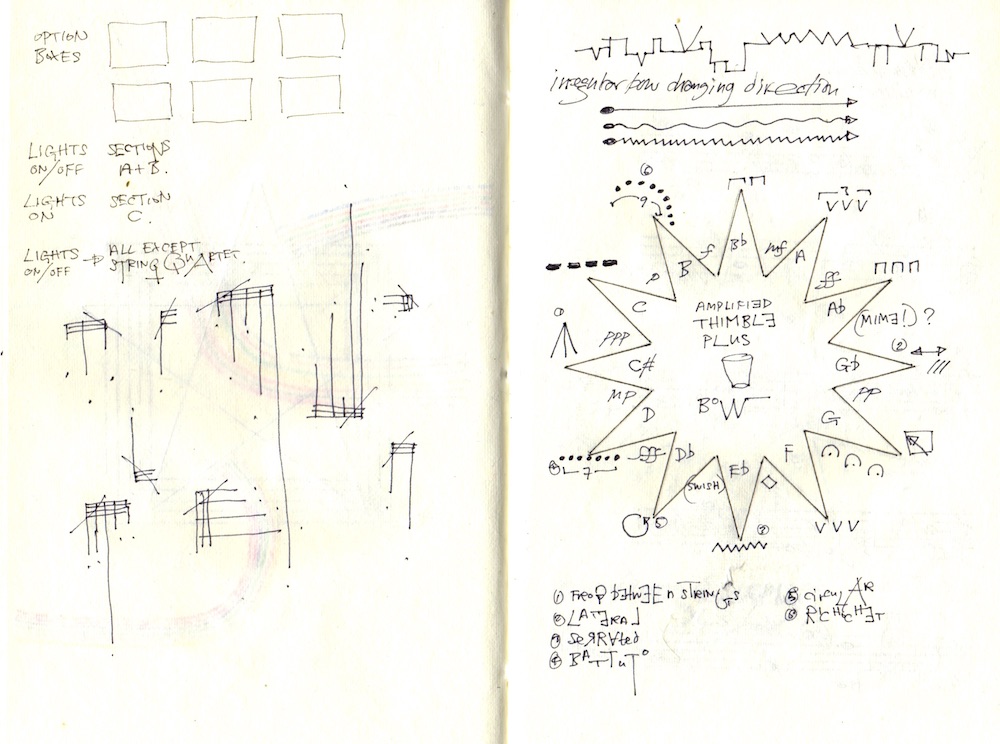 OPTION
BOXES
LIGHTS SECTIONS
ON/OFF A+B.
LIGHTS SECTION
ON C.
LIGHTS ALL EXCEPT
ON/OFF STRING QUARTET.
irregular bow changing direction
6
9
3
V V V
f
Bb
mf
B
A
p
ff
C
AMPLIFIED
Ab
THIMBLE
(MIME!)?
PPP
PLUS
2
C#
Gb
MP
PP
BOW
D
G
4
7
fff
Db
Eb
F
(SWISH)
5
3
V V V
① FROG BETWEEN STRINGS
② LATERAL
③ SERRATED
④ BATTUTO
⑤ CIRCULAR
⑥ RICHCHET